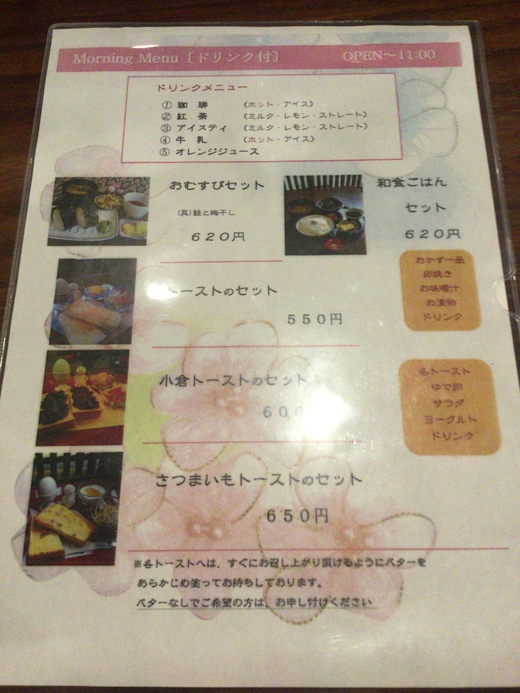 Morning Menu［ドリンク付］ OPEN～11:00
ドリンクメニュー
① 珈 琲 （ホット・アイス）
② 紅 茶 （ミルク・レモン・ストレート）
③ アイスティ （ミルク・レモン・ストレート）
④ 牛 乳 （ホット・アイス）
⑤ オレンジジュース
おむすびセット
（具）鮭と梅干し
６２０円
和食ごはん
セット
６２０円
おかず一品
卵焼き
お味噌汁
お漬物
ドリンク
トーストのセット
５５０円
小倉トーストのセット
６００
各トースト
ゆで卵
サラダ
ヨーグルト
ドリンク
さつまいもトーストのセット
６５０円
※各トーストへは、すぐにお召し上がり頂けるようにバターを
あらかじめ塗ってお持ちしております。
バターなしでご希望の方は、お申し付けください